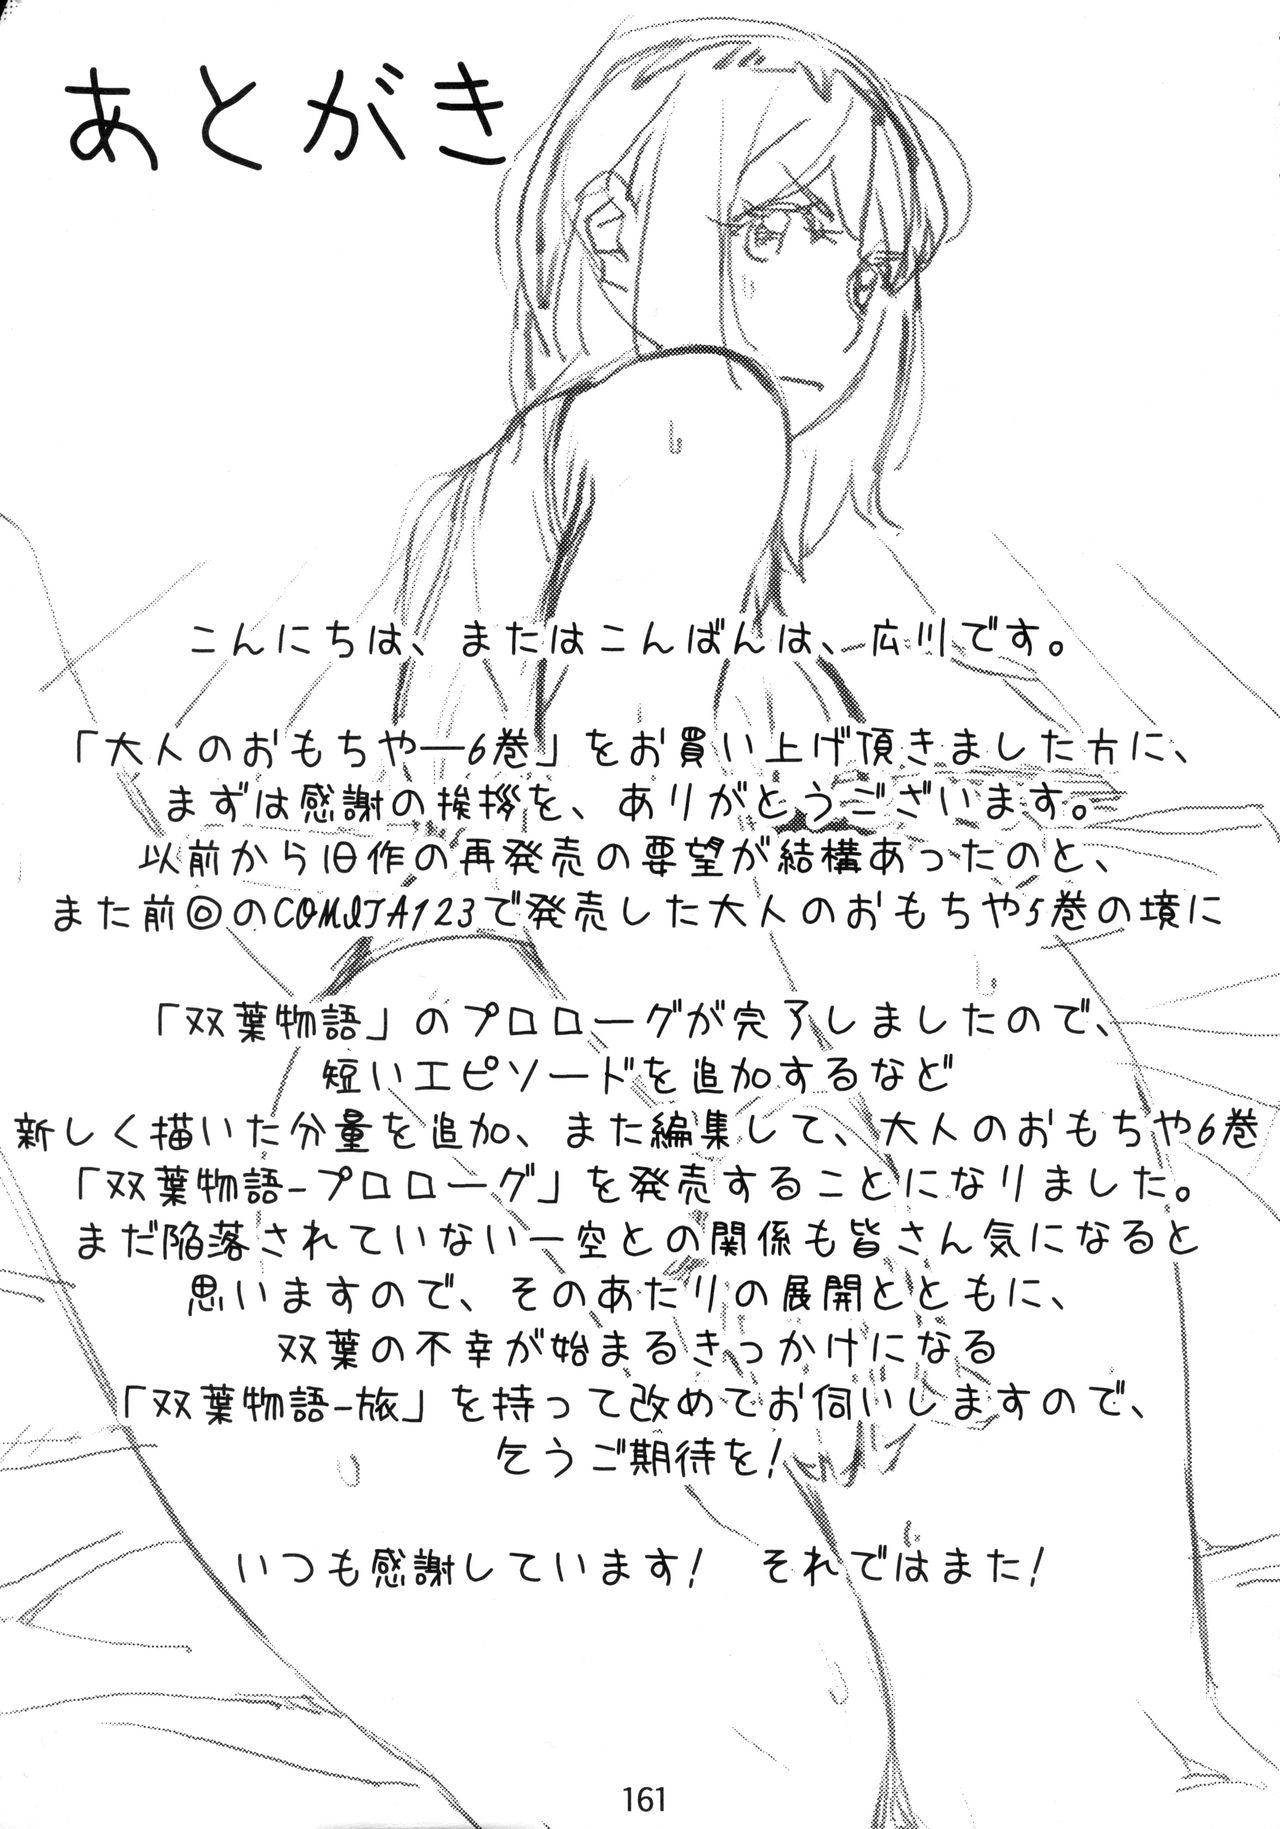 あとがき
こんにちは、またはこんばんは、広川です。
「大人のおもちや―6巻」をお買い上げ頂きました方に、
まずは感謝の挨拶を、ありがとうございます。
以前から旧作の再発売の要望が結構あったのと、
また前◎のCOMITA123で発売した大人のおもちや5巻の境に
「双葉物語」のプロローグが完了しましたので、
短いエピソードを追加するなど
新しく描いた分量を追加、また編集して、大人のおもちや6巻
「双葉物語-プロローグ」を発売することになりました。
まだ陥落されていない一空との関係も皆さん気になると
思いますので、そのあたりの展開とともに、
双葉の不幸が始まるきっかけになる
「双葉物語-旅」を持って改めてお伺いしますので、
乞うご期待を!
いつも感謝しています! それではまた!
161